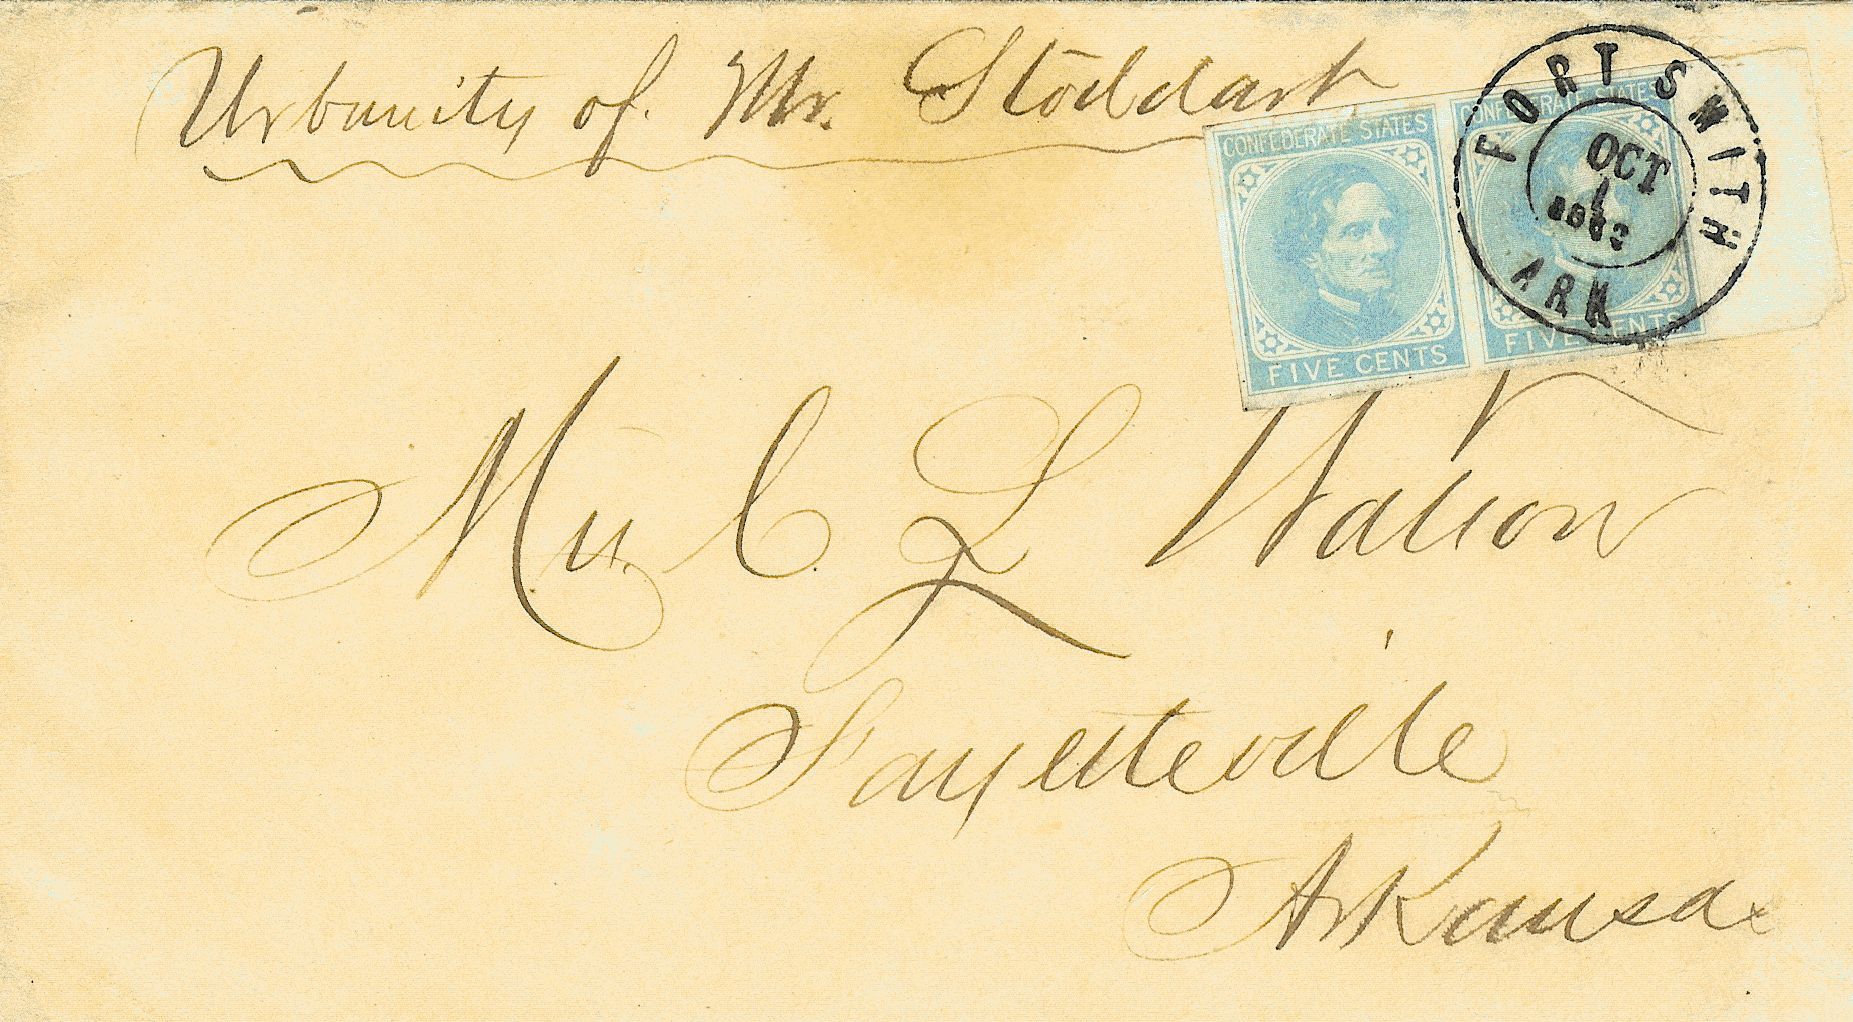 Urbanity of. Mr. Stoddart
CONFEDERATE STATES
FIVE CENTS
CONFEDERATE STATES
FIVE CENTS
FORT SMITH
OCT
1
ARK
C L
Fayetteville
Arkansas